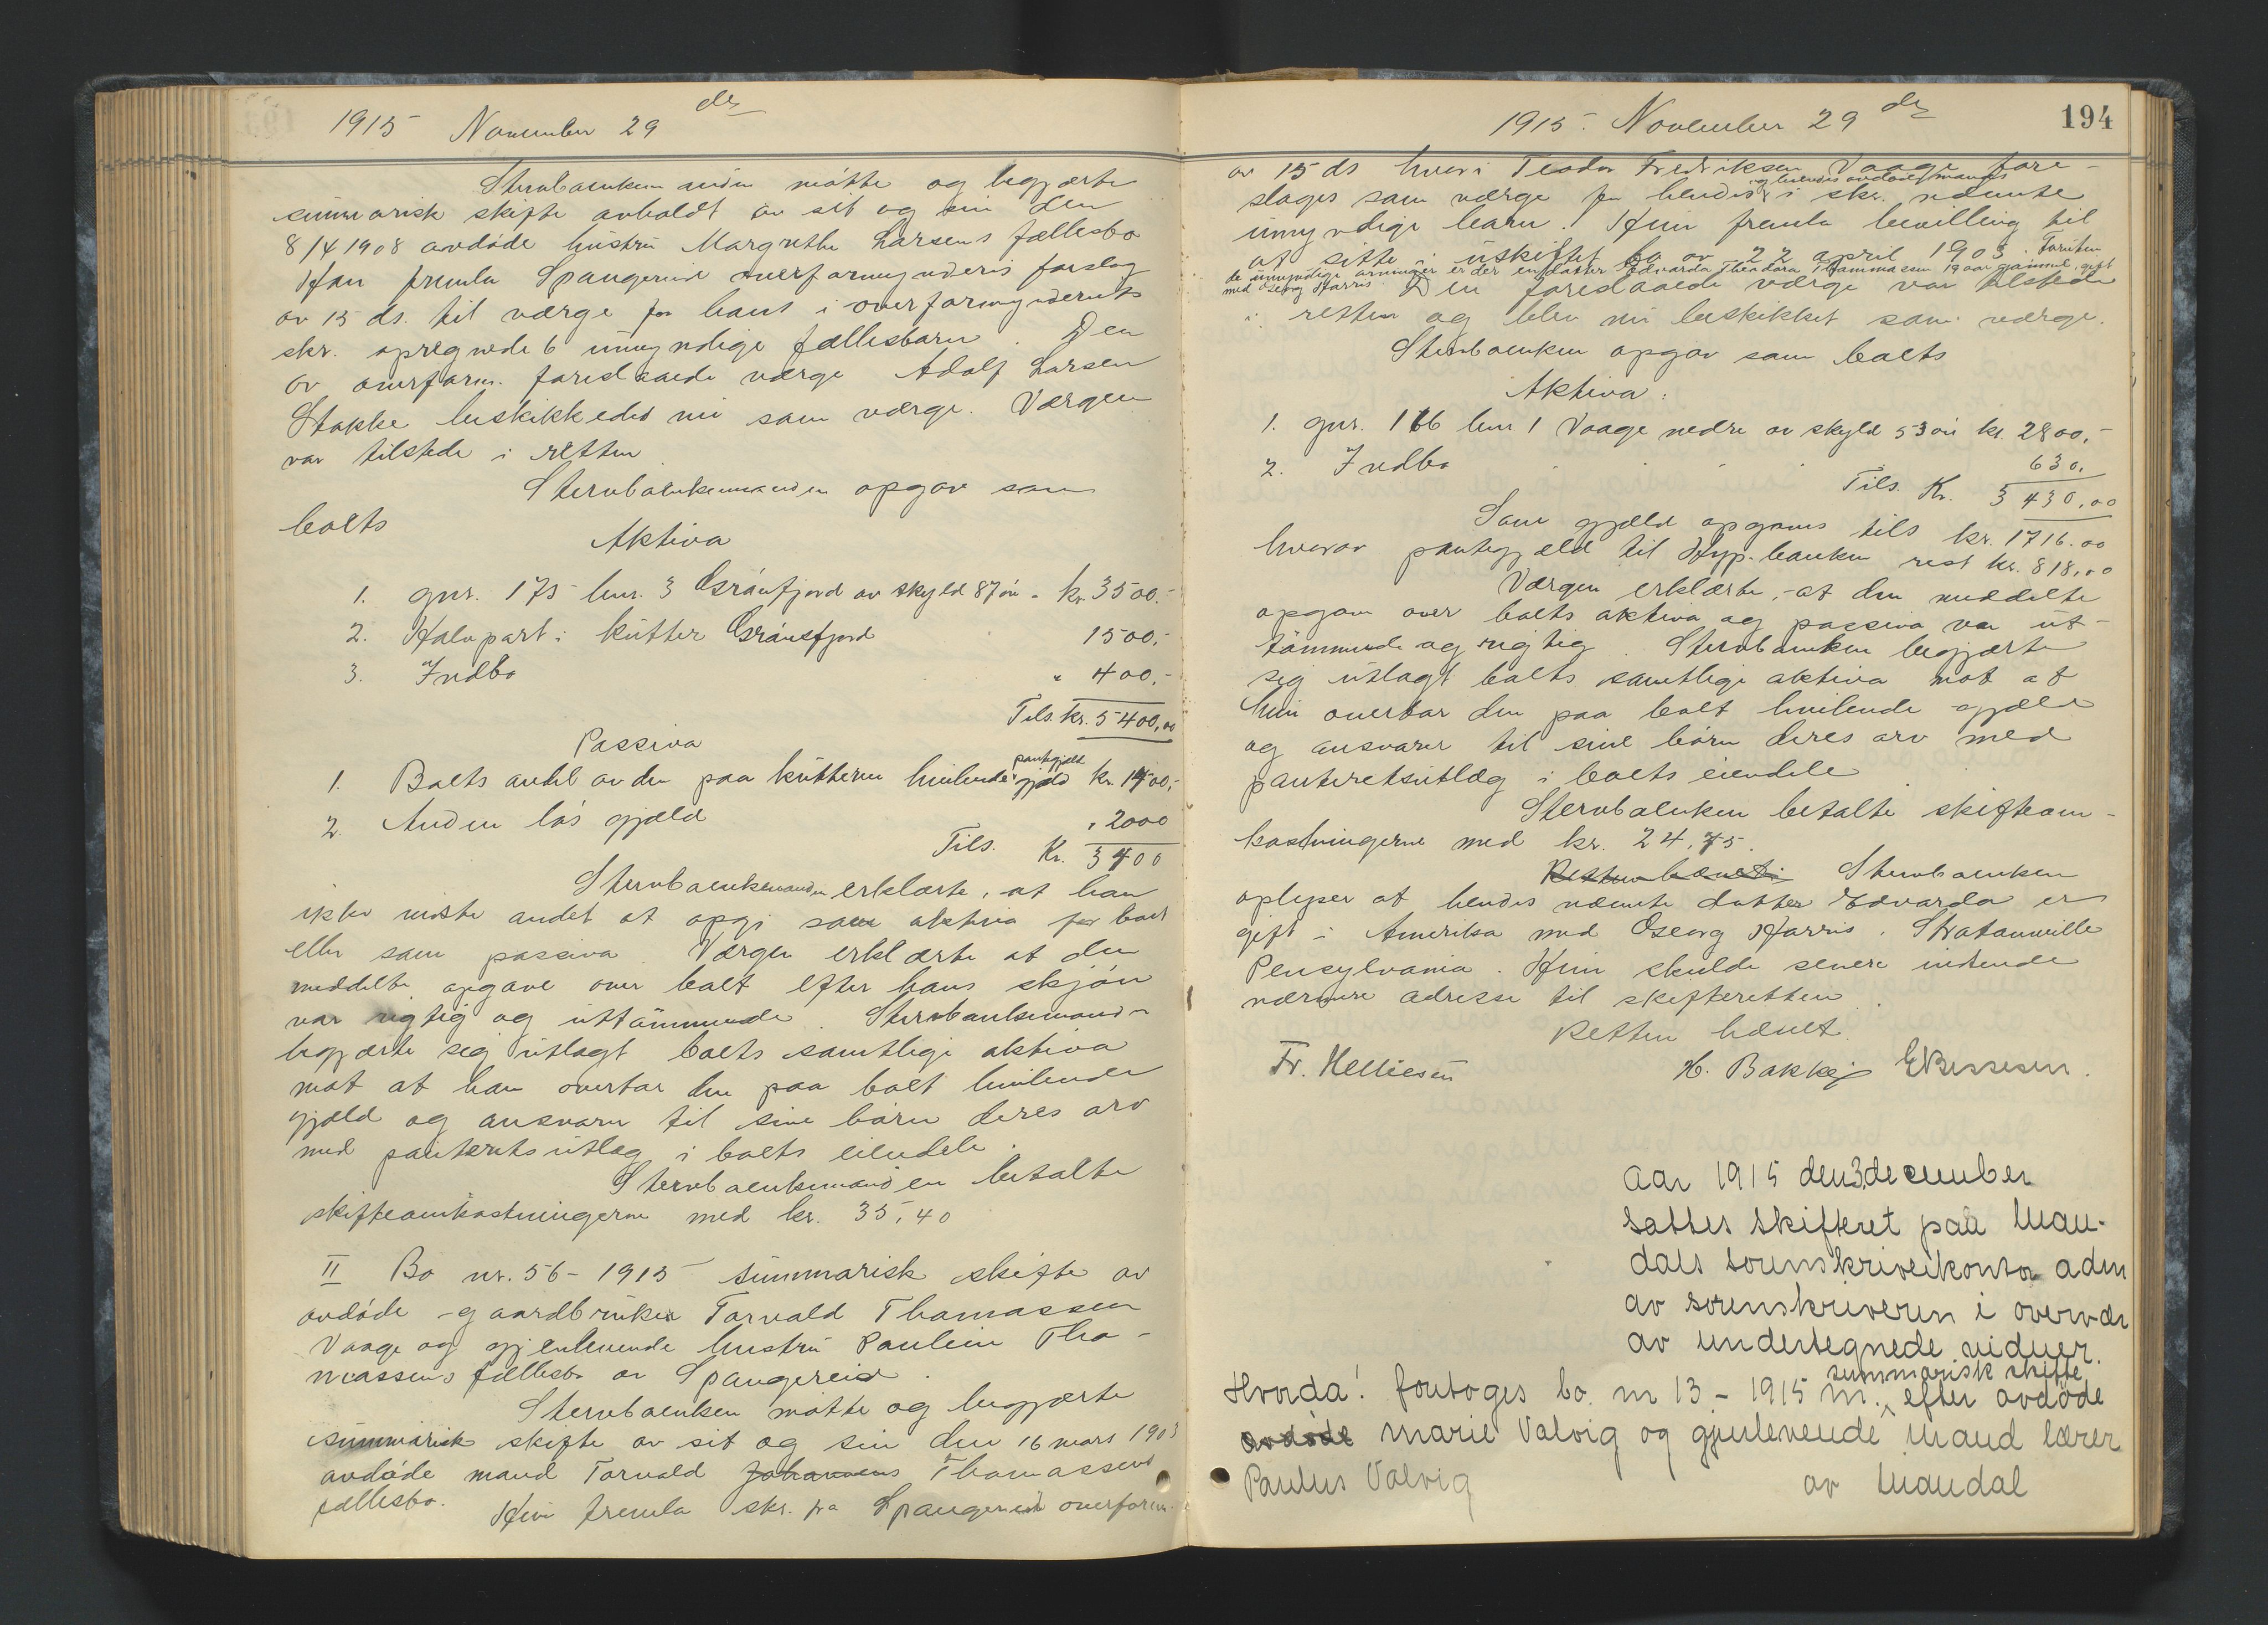 1915 November 29 de
Stervboenkemanden møtte og begjærte
summarisk skifte avholdt av sit og sin den
8/4 1908 avdøde hustru Margrethe Larsens fællesbo
Han fremla Spangereid overformynderis forslag
av 15 ds. til værge for hans i overformynderiets
skr. opregnede 6 umyndige fællesbarn. Den
av overform. foreslaaede værge Adolf Larsen
Stokke beskikkedes nu som værge. Værgen
var tilstede i retten
Stervboenkemanden opgav som
boets
Aktiva
1. gnr. 175 bnr. 3 Grånfjord av skyld 87 øre kr. 3500.-
2. Halvpart i kutter Grånsfjord 1500,-
3. Indbo " 400,-
Tils. kr. 5400,00
Passiva
1. Boets andel av den paa kutteren hvilende pantgjæld gjæld kr. 1400,-
2. Anden løs gjæld " 2000
Tils. Kr. 3400
Stervboenkemanden erklærte, at han
ikke visste andet at opgi som aktiva for boet
eller som passiva. Værgen erklærte at den
meddelte opgave over boet efter hans skjøn
var rigtig og uttømmende. Stervboenkemanden
begjærte sig utlagt boets samtlige aktiva
mot at han overtar den paa boet hvilende
gjæld og ansvarer til sine børn deres arv
med panteretsutlæg i boets eiendele.
Stervboenkemanden betalte
skifteomkostningerne med kr. 35,40
II Bo nr. 56 - 1915 summarisk skifte av
avdøde gaardbruker Torvald Thomassen
Vaage og gjenlevende hustru Paulein Tho-
massens fællesbo av Spangereid.
Stervboenken møtte og begjærte
summarisk skifte av sit og sin den 16 mars 1903
avdøde mand Torvald Johannens Thomassens
fællesbo. Hun fremla skr. fra Spangereid overform.
1915. November 29 de
194
av 15 ds hvori Teodor Fredriksen Vaage fore-
slages som værge for hendes og hendes avdøde mands i skr. nævnte
umyndige barn. Hun fremla bevilling til
at sitte i uskiftet bo av 22 april 1903. Foruten
de umyndige arvinger er der en datter Edvarda Theodora Thommassen 19 aar gammel, gift
med Georg Harris. Den foreslaaede værge var tilstede
i retten og blev nu beskikket som værge.
Stervboenken opgav som boets
Aktiva.
1. gnr. 166 bnr 1 Vaage nedre av skyld 53 øre kr. 2800,-
2. Indbo 630,
Tils. Kr. 3430,00
Som gjæld opgaves tils kr. 1716.00
hvorav pantegjæld til Hyp. banken rest kr. 818,00
Værgen erklærte, at den meddelte
opgave over boets aktiva og passiva var ut-
tømmende og rigtig. Stervboenken begjærte
sig utlagt boets samtlige aktiva mot at
hun overtar den paa boet hvilende gjæld
og ansvarer til sine børn deres arv med
panteretsutlæg i boets eiendele.
Stervboenken betalte skifteom-
kostningerne med kr. 24,45.
Retten hævet. Stervboenken
oplyser at hendes nævnte datter Edvarda er
gift i Amerika med Georg Harris. Stratanville
Pensylvania. Hun skulde senere indsende
nærmere adresse til skifteretten.
Retten hævet.
Fr. Helliesen H. Bakkej E Bessesen.
Aar 1915 den 3 december
sattes skifteret paa Man-
dals sorenskriverkontor adm
av sorenskriveren i overvær
av undertegnede vidner.
Hvorda! foretoges bo. nr 13 - 1915 M. summarisk skifte efter avdøde
avdøde Marie Valvig og gjenlevende mand lærer
Paulus Valvig av Mandal